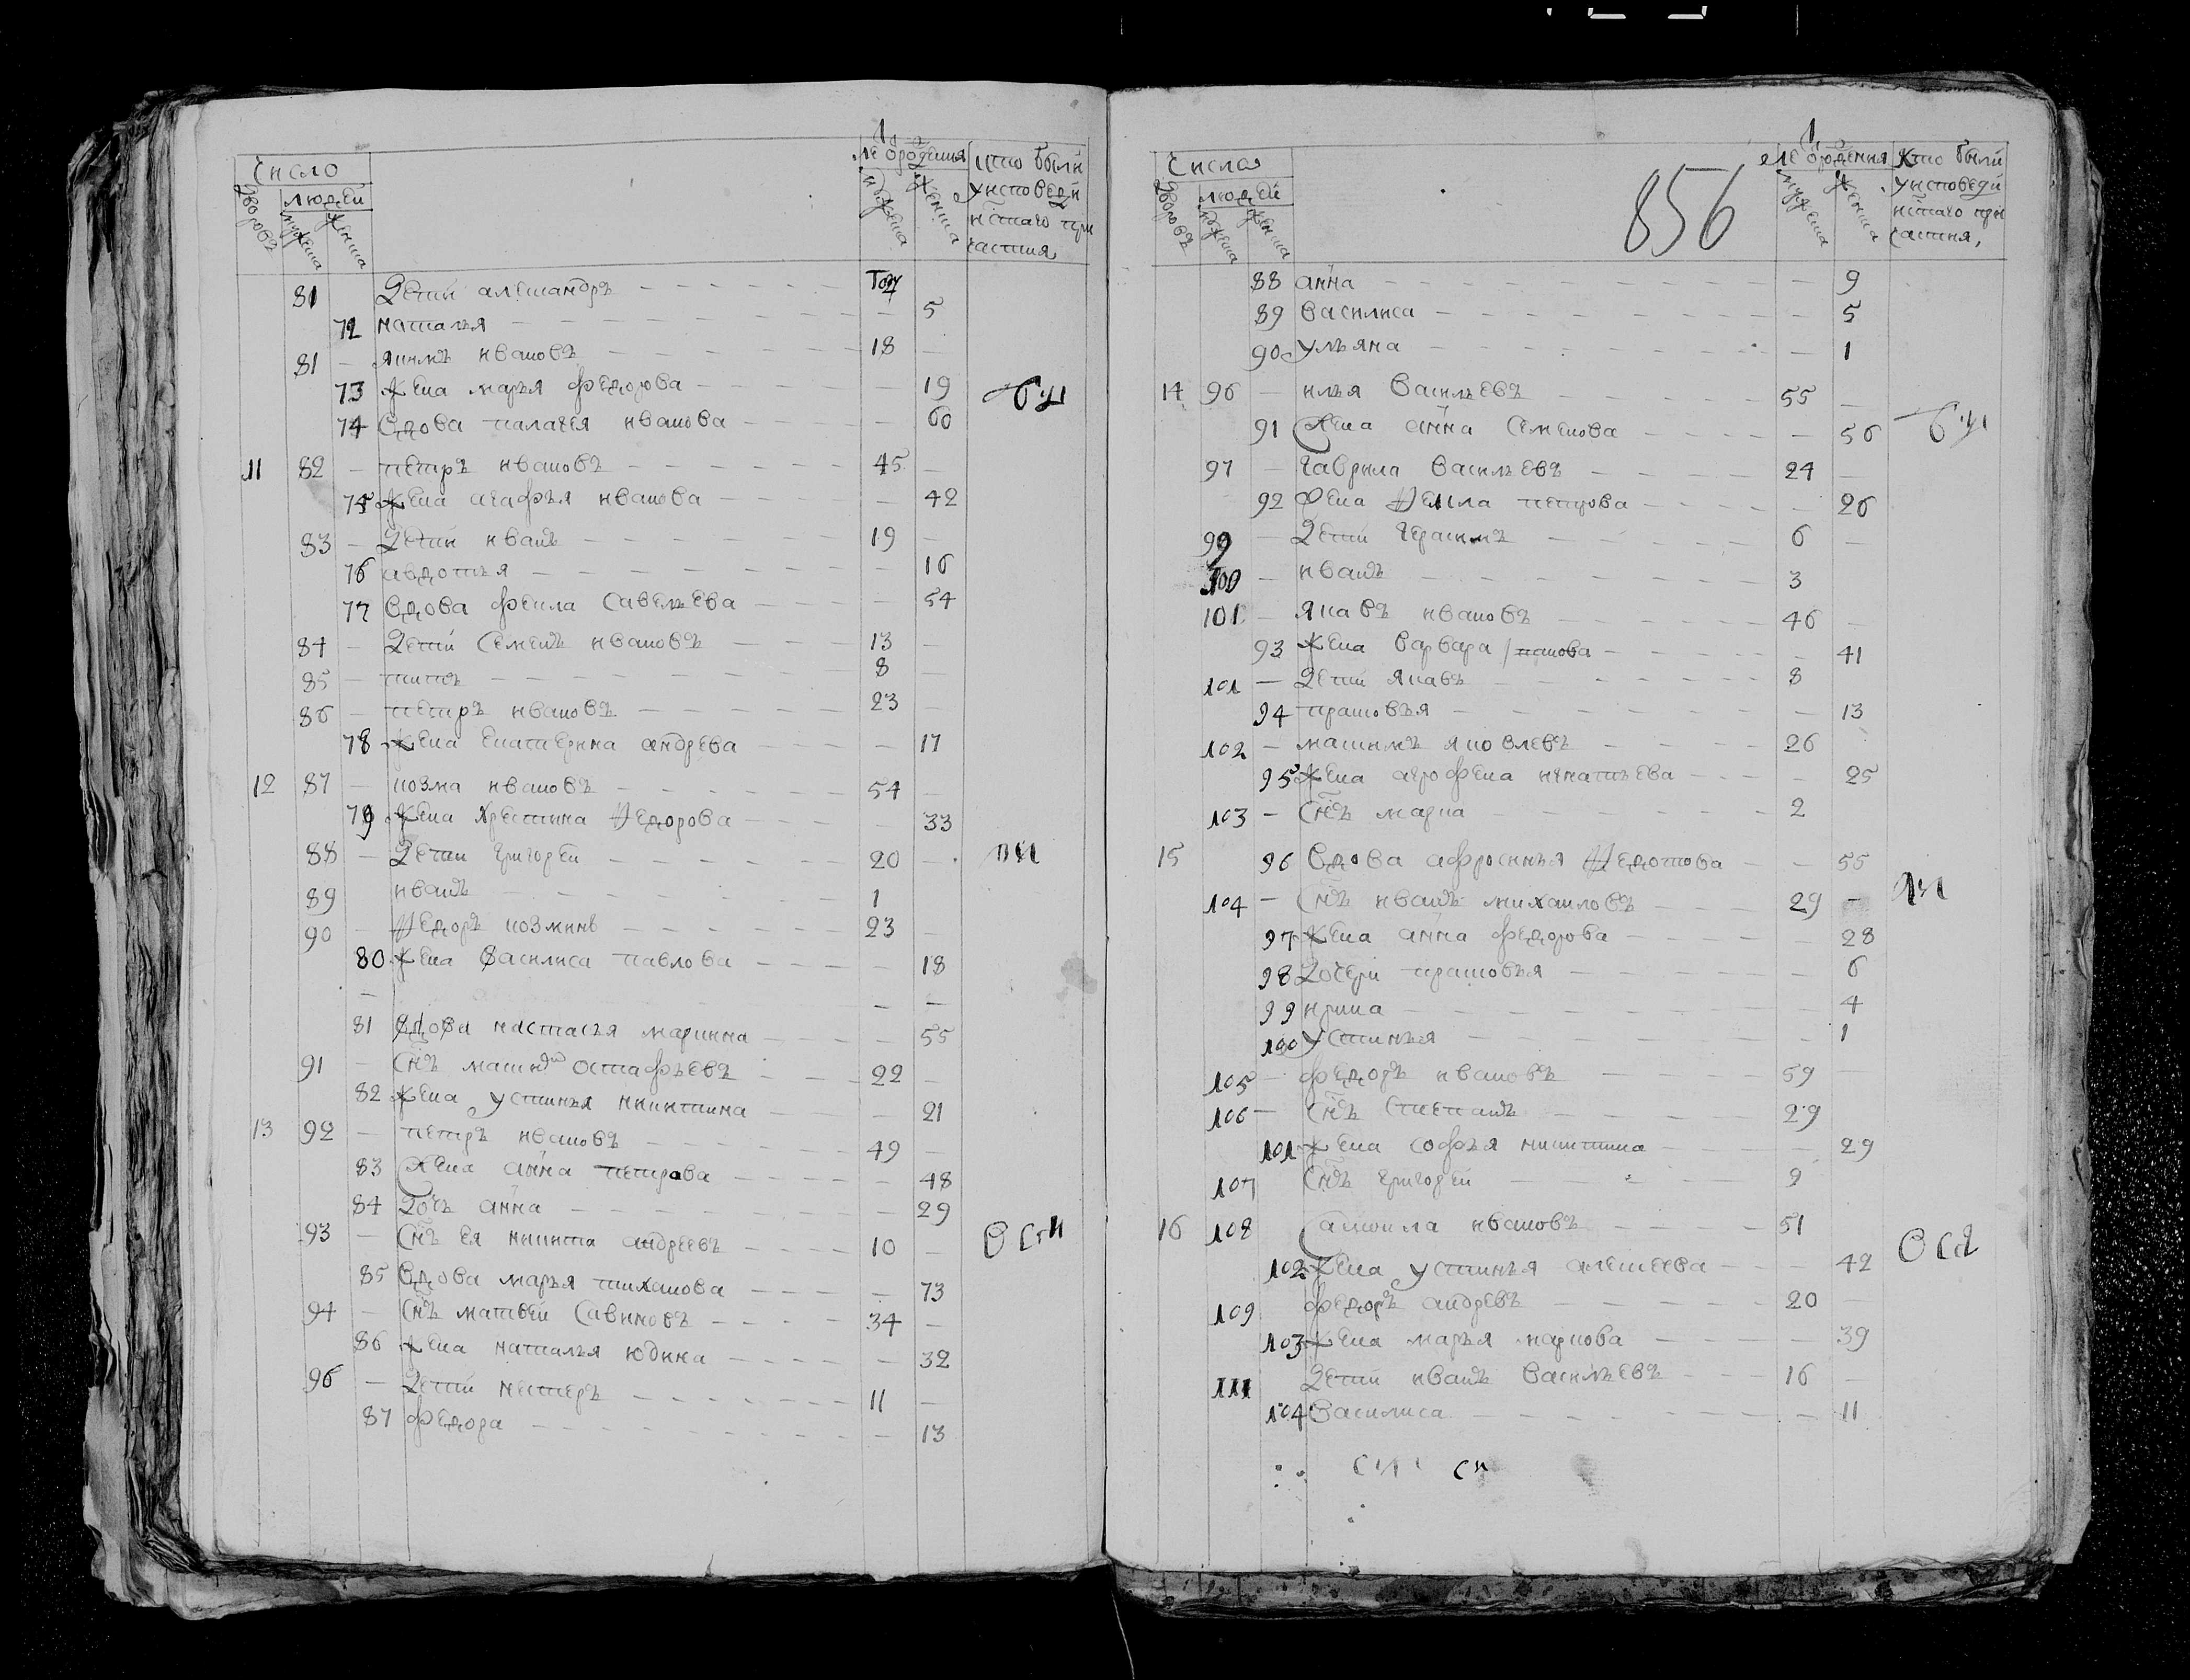 Число
людей
дворовъ
мужеска
женска
лѣ ѿ рождения
мужеска
женска
кто были
у исповеди
и стаго при
частия
81 Дети александръ - тогу
72 наталья - 5
81 - якимъ ивановъ - 18 -
73 жена марья федорова - 19
74 вдова палагея иванова - 60
11 82 - петръ ивановъ - 45 -
75 жена агафья иванова - 42
83 - Дети иванъ - 19 -
76 авдотья - 16
77 вдова фекла савельева - 54
84 - Дети семенъ ивановъ - 13 -
85 - титъ - 8 -
86 - петръ ивановъ - 23 -
78 жена екатерина андрева - 17
12 87 - козма ивановъ - 54 -
79 жена христина Ѳедорова - 33
88 - Дети григорей - 20 -
89 иванъ - 1
90 - Ѳедоръ козминъ - 23 -
80 жена василиса павлова - 18
81 вдова настасья маркина - 55
91 - снъ остафьевъ - 22 -
82 жена устинья никитина - 21
13 92 - петръ ивановъ - 49 -
83 жена анна петрова - 48
84 дочь анна - 29
93 - снъ ея никита андреевъ - 10 -
85 вдова марья тиханова - 73
94 - снъ матвей савиновъ - 34 -
86 жена наталья юдина - 32
96 - Дети нестеръ - 11 -
87 федора - 13
856
Числа
людей
дворовъ
мужеска
женска
лѣ ѿ рождения
мужеска
женска
Кто были
у исповеди
и стаго при
частия,
88 анна - 9
89 василиса - 5
90 ульяна - 1
14 96 - илья васильевъ - 55 -
91 жена анна семенова - 56
97 - гаврила васильевъ - 24 -
92 жена Ѳекла петрова - 26
99 - Дети герасимъ - 6 -
100 - иванъ - 3
101 - яковъ ивановъ - 46 -
93 жена варвара - 41
101 - Дети яковъ - 8
94 прасковья - 13
102 - максимъ яковлевъ - 26
95 жена агрофена игнатьева - 25
103 - снъ марка - 2
15 96 вдова афросинья Ѳедотова - 55
104 - снъ иванъ михаиловъ - 29 -
97 жена анна федорова - 28
98 дочери прасковья - 6
99 ирина - 4
100 устинья - 1
105 - федоръ ивановъ - 59 -
106 - снъ степанъ - 29
101 жена софья никитина - 29
107 снъ григорей - 9
16 108 самоила ивановъ - 51
102 жена устинья алексеева - 42
109 федоръ андревъ - 20 -
103 жена марья маркова - 39
111 Дети иванъ васильевъ - 16 -
104 василиса - 11